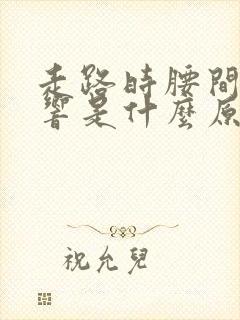 走路時腰間
響是什麼原
祝允兒